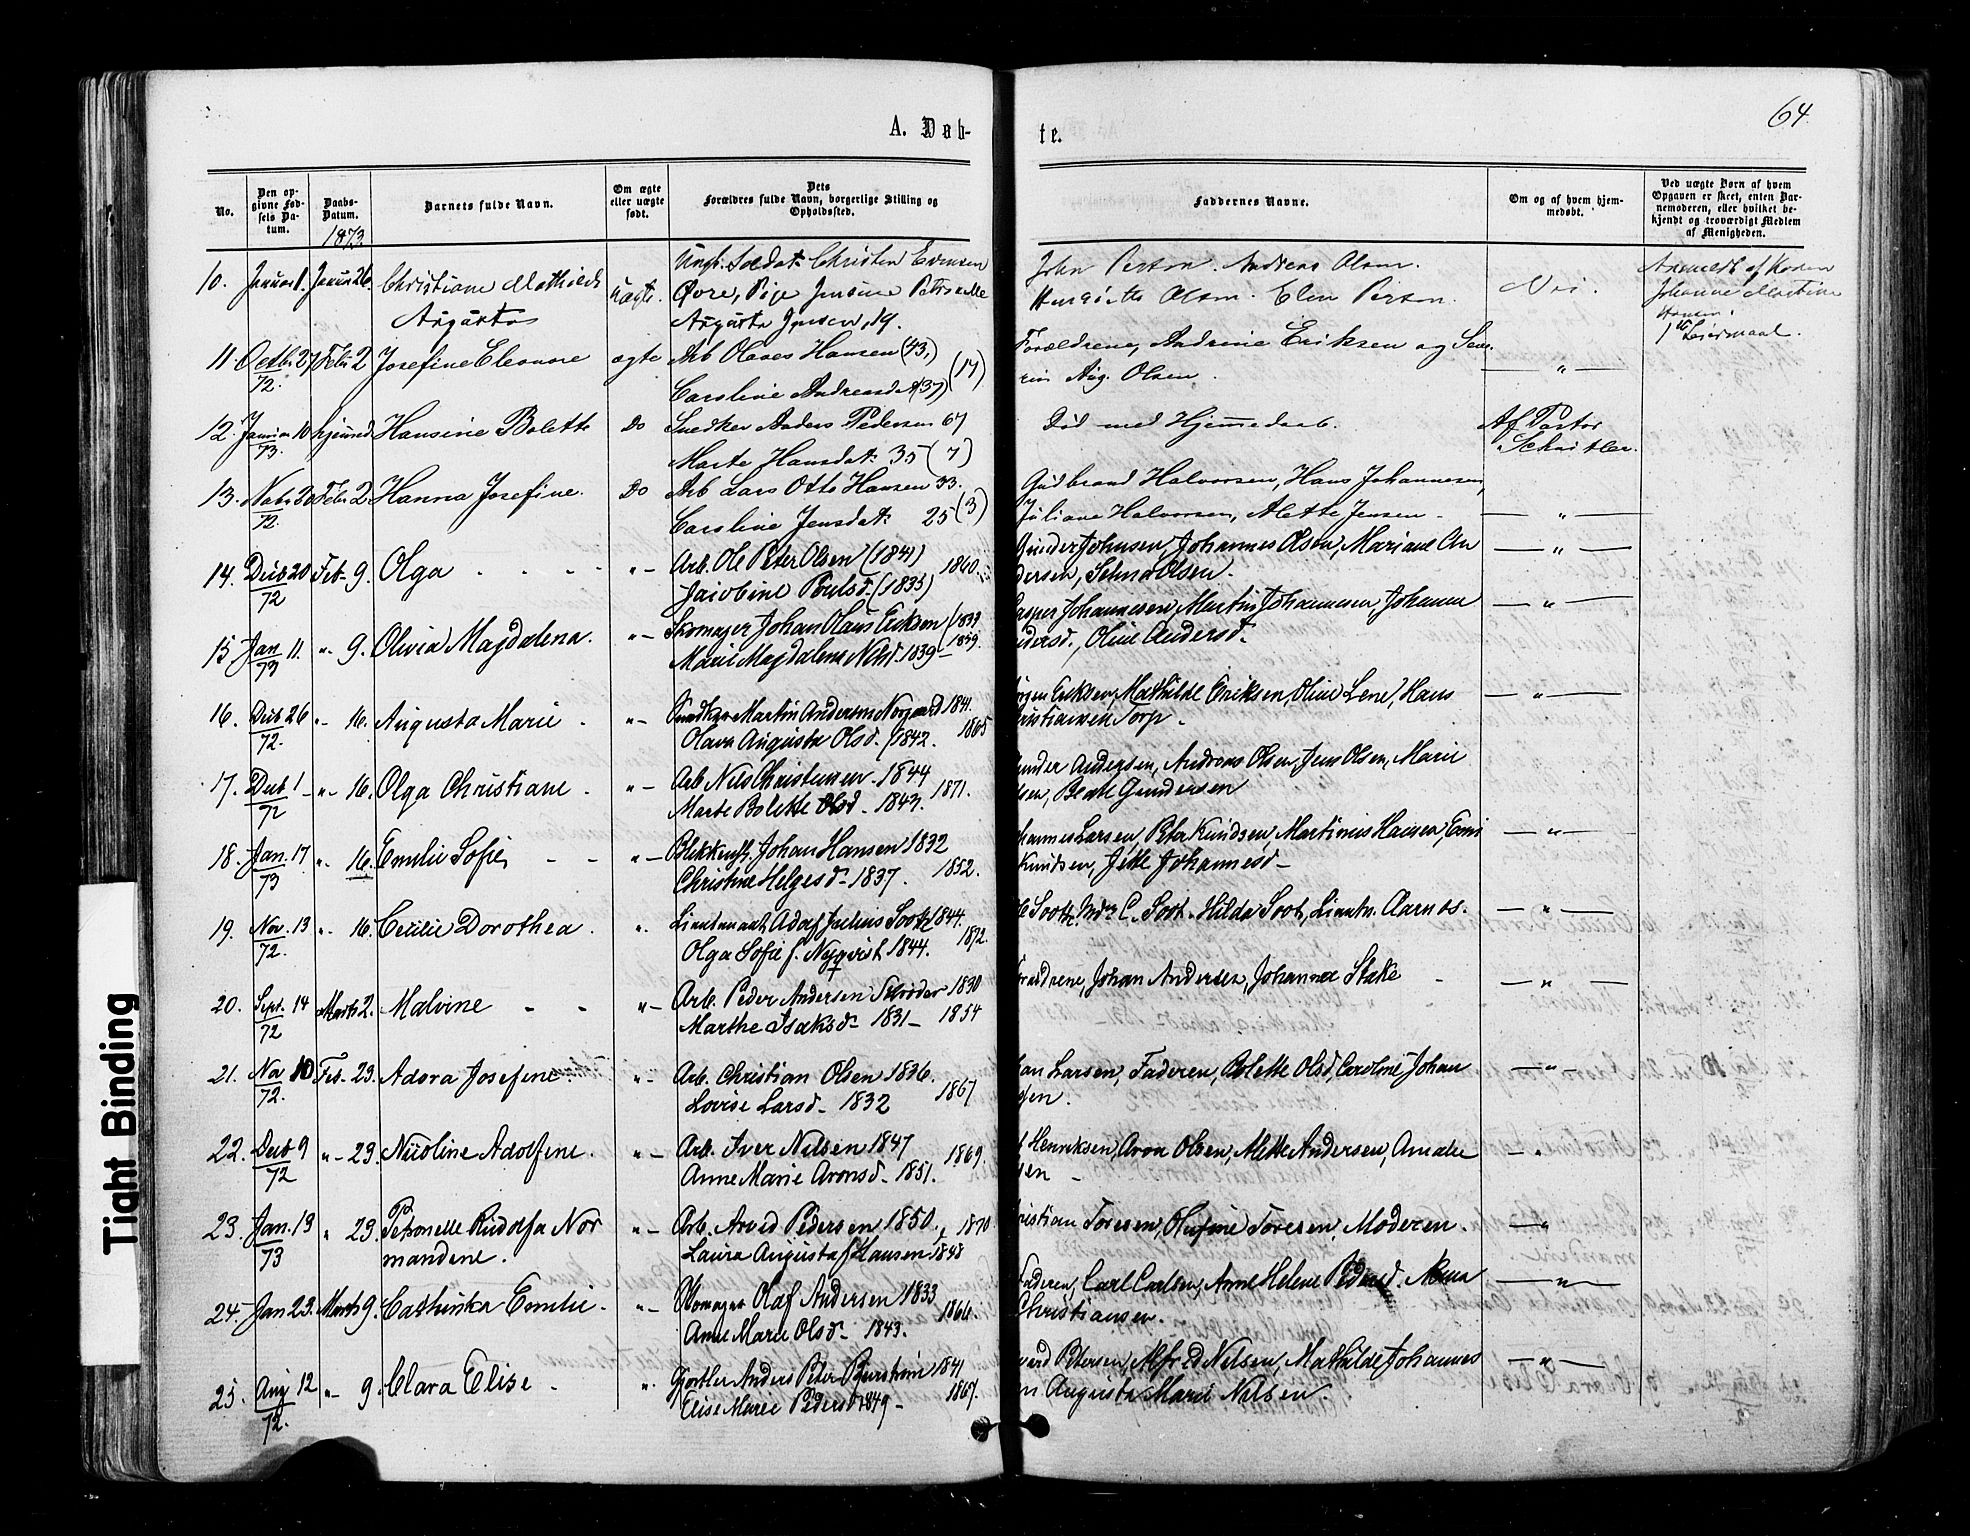 64.
A. Døb-
te.
No.
Den opgivne Fødsels Datum.
Daabs-Datum.
1873
Barnets fulde Navn.
Om ægte eller uægte født.
Dets Forældres fulde Navn, borgerlige Stilling og Opholdssted.
Faddernes Navne.
Om og af hvem hjemmedøbt.
Ved uægte Børn af hvem Opgaven er skeet, enten Barnemoderen, eller hvilket bekjendt og troværdigt Medlem af Menigheden.
10. Januar 1. Januar 26. Christiane Mathilde Uægte. Ungk. Soldat Christen Evensen John Person. Andreas Olsen. Nei. Anmeldt af Konen
Augusta Øvre, Pige Jensine Petronelle Olsen. Elen Person. Johanne Martine
Augusta Jensen, 19. Hansen.
1ste Leiermaal.
11. Octbr 27 Febr 2 Josefine Eleonore ægte Arb Olaves Hansen (43,) Forældrene, Andrine Eriksen og Seve- — " —
72. Caroline Andreasd. (37) (17) rin Aug. Olsen.
12. Januar 10 hjemmed Hansine Bolette Do Snedker Anders Pedersen 67 Død med Hjemmedaab. Af Pastor
73. Marte Hansdat. 35 (7)
13. Novbr 20 Febr 2 Hanna Josefine. Do Arb Lars Otto Hansen 33. Gudbrand Halvorsen, Hans Johannesen,
72. Caroline Jensdat. 25 (3) Juliane Halvorsen, Alette Jensen — " —
14. Decb 20 Feb. 9. Olga " — Arb. Ole Peter Olsen (1841) 1860. Gunder Johnsen, Johannes Olsen, Mariane An — " —
72 Jacobine Poulsd. (1835) dersen, Olsen.
15 Jan. 11. " 9. Olivia Magdalena. " — Skomager Johan Olaus Eriksen (1833 Casper Johannesen, Martin Johannesen, Johann — " —
73 Marie Magdalene Nilsd. 1839 — 1859. ndersd., Oline Andersd.
16. Decb 26 " 16. Augusta Marie. " — Snedker Martin Andersen Norgaard 1841. ørgen Eriksen, Mathilde Eriksen, Oline Lene, Hans — " —
72. Olava Augusta Olsd. (1842. 1865 ristiansen Torp.
17. Decb 1 — " 16. Olga Christiane. " — Arb Nils Christensen 1844 under Andersen, Andreas Olsen, Jens Olsen, Marie
72 Marte Bolette Olsd. 1843. 1871. lsen, Beate Gundersen
18. Jan. 17 " 16. Emilie Sofie, " — Blikkensl. Johan Hansen 1832 hannes Larsen, Peter Knudsen, Martinus Hansen, Emi — " —
73 Christine Helgesd. 1837. 1852. Knudsen, Jette Johannesd —
19. Nov. 13 " 16. Cecilie Dorothea. " Lieutenant Adolf Julius Sooth 1844. Sooth, C. Soot. Hilda Soot, Lieutn. Aarnes. — " —
72. Olga Sofie f. Nyqvist 1844. 1872.
20. Sept. 14 Marts 2. Malvine " — Arb. Peder Andersen 1830 orældrene, Johan Andersen, Johanna Stake — " —
72 Marthe Isaksd — 1831 — 1854
21. Nov 10 Feb. 23. Adora Josefine. " — Arb. Christian Olsen 1836. an Larsen, Faderen, Bolette Olsd, Caroline Johan — " —
72. Lovise Larsd — 1832 1867 sen.
22. Decb 9 " — 23. Nicoline Adolfine. " — Arb. Iver Nilsen 1847 Henriksen, Aron Olsen, Mette Andersen, Amalie — "
72 Anne Marie Aronsd — 1851. 1869. sen —
23. Jan. 13 " 23. Petronelle Rudolfa Nor " — Arb. Arvid Pedersen 1850. 1870 ristian Toresen, Olufine Toresen, Moderen. — "
73 mandene. Laura Augusta f Hansen 1848
24. Jan 23. Marts 9. Cathinka Emilie. " — Skomager Olaf Andersen 1833 Faderen, Carl Carlsen, Anne Helene Pedersd. — " —
Anne Marie Olsd — 1843. 1866. Christiansen.
25. Aug 12 " — 9. Clara Elise. " Gjørtler Anders Peter Bjurstrøm 1841 vard Petersen, Alfred Nelsen, Mathilde Johannes — " —
72. Elise Marie Pedersd 1849 — 1867. en Augusta Marie Nilsen.
Tight Binding